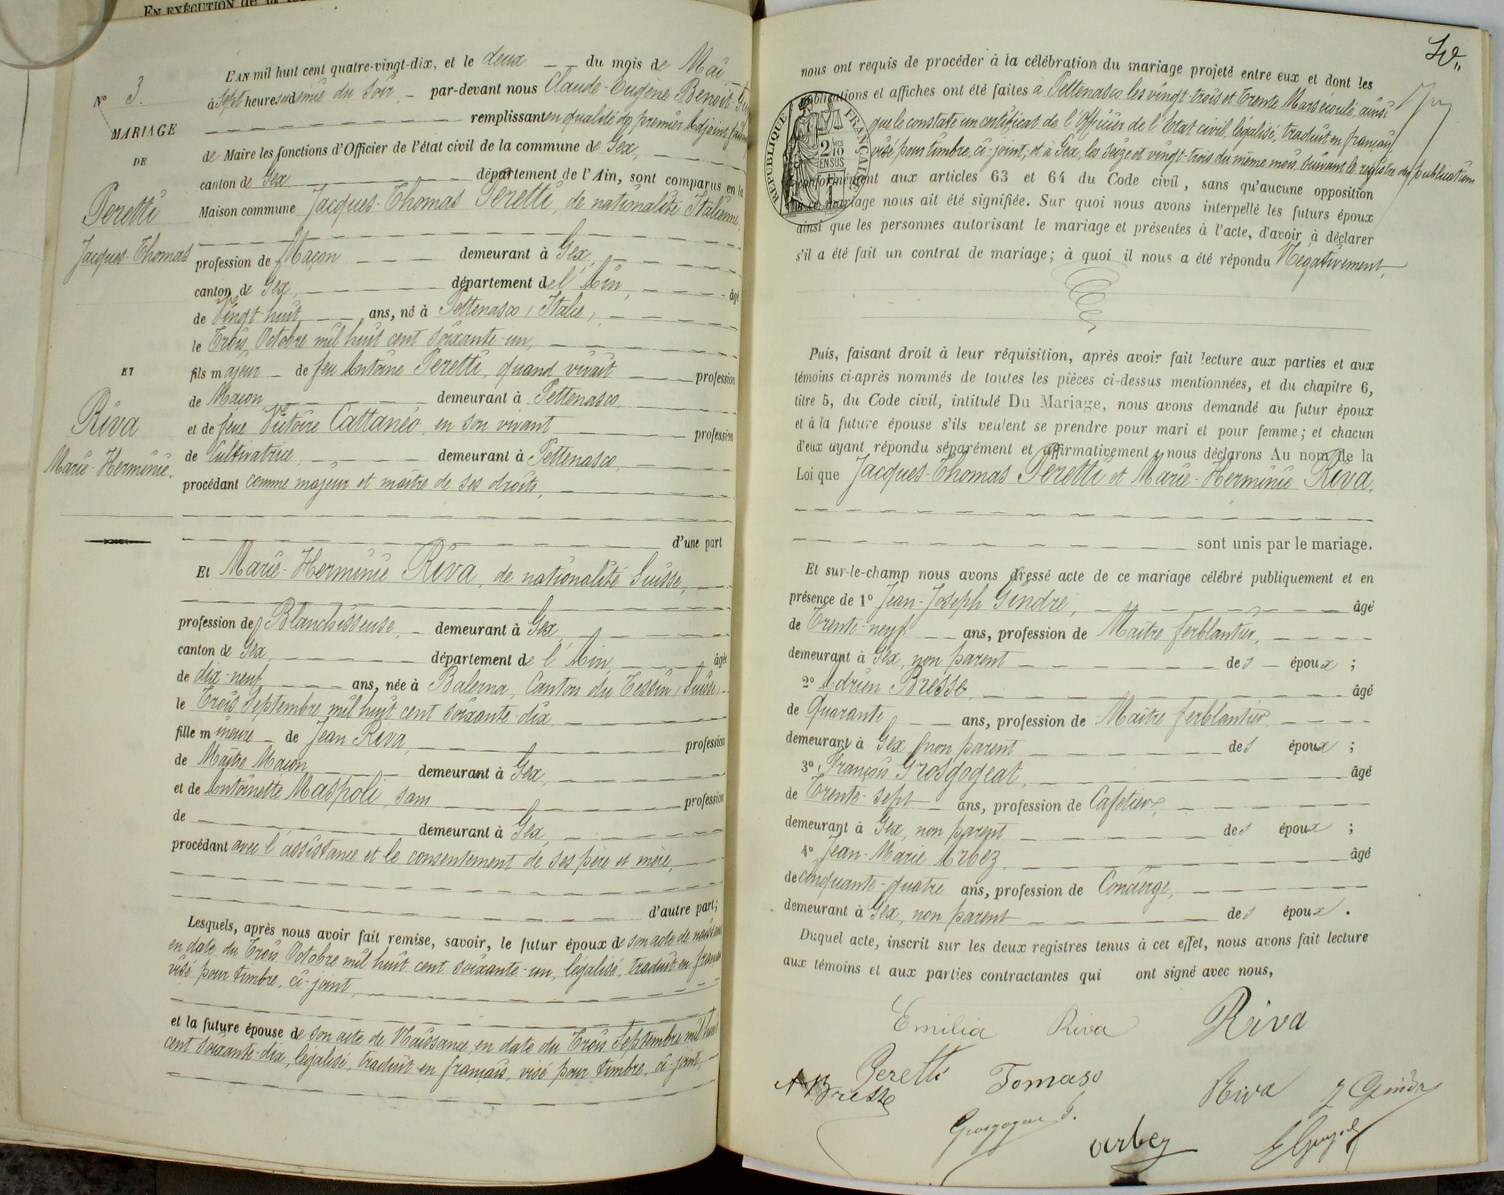 EN EXÉCUTION de la
N° 3.
MARIAGE
DE
Peretti
Jacques-Thomas
ET
Riva
Marie-Herminie.
L'AN mil huit cent quatre-vingt-dix, et le deux du mois de Mai
à Sept heures du soir par-devant nous Claude-Eugène Benoit
remplissant en qualité de premier Adjoint
de Maire les fonctions d'Officier de l'état civil de la commune de Gex,
canton de Gex département de l'Ain, sont comparus en la
Maison commune Jacques-Thomas Peretti, de nationalité Italienne,
profession de Maçon demeurant à Gex,
canton de Gex, département de l'Ain, âgé
de Vingt huit ans, né à Pettenasco (Italie),
le Trois Octobre mil huit cent soixante-un,
fils majeur de feu Antoine Peretti, quand vivait profession
de Maçon demeurant à Pettenasco
et de feue Victoire Cattanéo, en son vivant profession
de Cultivatrice, demeurant à Pettenasco,
procédant comme majeur et maître de ses droits,
d'une part
Et Marie-Herminie Riva, de nationalité Suisse,
profession de Blanchisseuse, demeurant à Gex,
canton de Gex département de l'Ain âgée
de dix-neuf ans, née à Balerna, Canton du Tessin (Suisse)
le Trois Septembre mil huit cent soixante-dix
fille mineure de Jean Riva, profession
de Maître Maçon demeurant à Gex,
et de Antoinette Maspoli, sans profession
de demeurant à Gex,
procédant avec l'assistance et le consentement de ses père et mère,
d'autre part;
Lesquels, après nous avoir fait remise, savoir, le futur époux de son acte de naissance
en date du Trois Octobre mil huit cent soixante-un, légalisé, traduit en français
visé pour timbre, ci-joint,
et la future épouse de son acte de Naissance en date du Trois Septembre mil huit
cent soixante-dix, légalisé, traduit en français, visé pour timbre, ci-joint,
nous ont requis de procéder à la célébration du mariage projeté entre eux et dont les
publications et affiches ont été faites à Pettenasco les vingt-trois et trente Mars écoulé, ainsi
que le constate un certificat de l'Officier de l'Etat civil, légalisé, traduit en français,
visé pour timbre, ci-joint, et à Gex, les seize et vingt-trois du même mois, suivant le registre de publication
conformément aux articles 63 et 64 du Code civil, sans qu'aucune opposition
à ce mariage nous ait été signifiée. Sur quoi nous avons interpellé les futurs époux
ainsi que les personnes autorisant le mariage et présentes à l'acte, d'avoir à déclarer
s'il a été fait un contrat de mariage; à quoi il nous a été répondu Négativement,
RÉPUBLIQUE FRANÇAISE
2/10 EN SUS
Puis, faisant droit à leur réquisition, après avoir fait lecture aux parties et aux
témoins ci-après nommés de toutes les pièces ci-dessus mentionnées, et du chapitre 6,
titre 5, du Code civil, intitulé Du Mariage, nous avons demandé au futur époux
et à la future épouse s'ils veulent se prendre pour mari et pour femme; et chacun
d'eux ayant répondu séparément et affirmativement, nous déclarons Au nom de la
Loi que Jacques-Thomas Peretti et Marie-Herminie Riva.
sont unis par le mariage.
Et sur-le-champ nous avons dressé acte de ce mariage célébré publiquement et en
présence de 1° Jean-Joseph Gindre, âgé
de Trente-neuf ans, profession de Maître ferblantier,
demeurant à Gex, non parent des époux ;
2° Adrien Bresse âgé
de Quarante ans, profession de Maître ferblantier
demeurant à Gex, non parent des époux ;
3° François Grosgogeat, âgé
de Trente-sept ans, profession de Cafetier,
demeurant à Gex, non parent des époux ;
4° Jean-Marie Arbez âgé
de cinquante-quatre ans, profession de Concierge,
demeurant à Gex, non parent des époux.
Duquel acte, inscrit sur les deux registres tenus à cet effet, nous avons fait lecture
aux témoins et aux parties contractantes qui ont signé avec nous,
Emilia Riva Riva
Peretti Tomaso Riva J Gindre
A Bresse
arbez